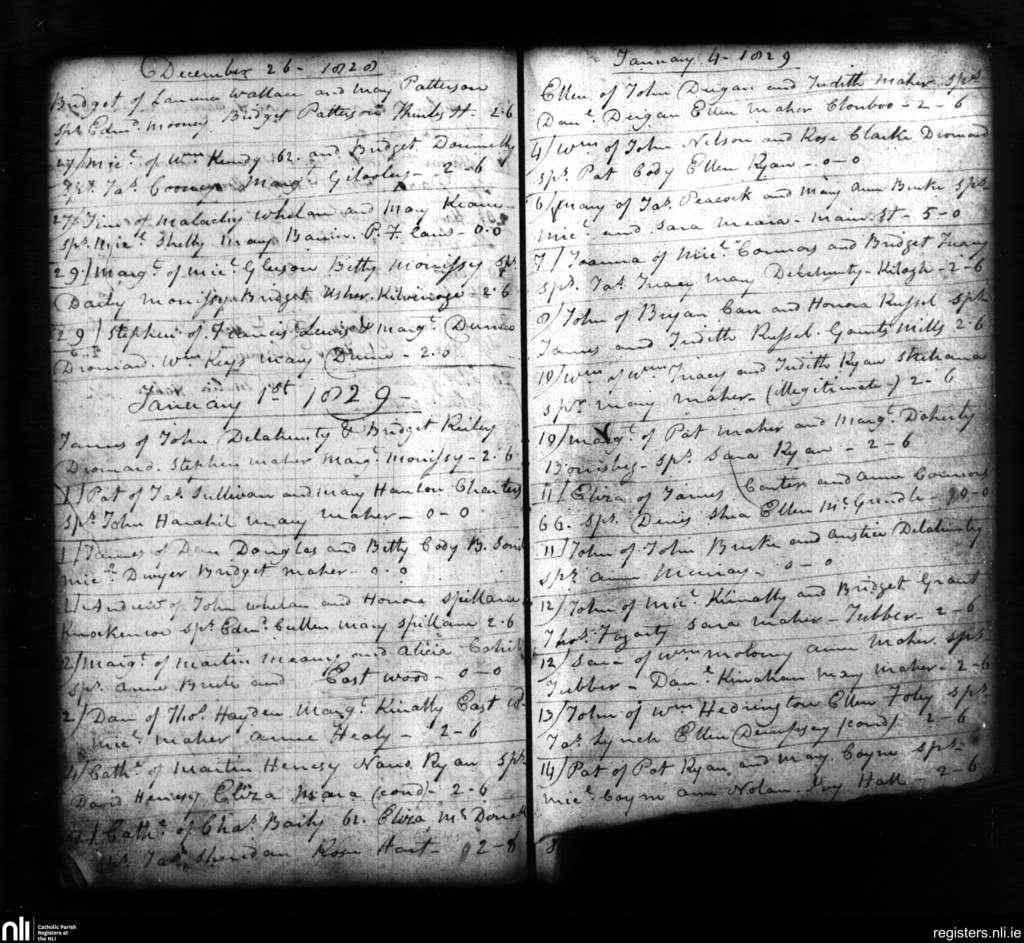 December 26 - 1828
Bridget of Wallace and May Patterson
sps Edmd. Mooney Bridget Patterson St. 2-6
27/ Mic. of Wm Kendy 62. and Bridget Donnelly
Jas. Marg. - 2-6
27/ of Malachy Whelan and May Keane
sps Mic. Shelly May P. F. - 0.0
29/ Marg. of Mic. Gleeson Betty Morrissy sps
Daily Morrissy Bridget Usher. - 2.6
29/ Stephen of Francis Lewis & Marg. Dunne
Dromard. Wm Keys May Dunne - 2.0
January 1st 1829 -
James of John Delahunty & Bridget Reiley
Dromard. Stephen Maher Marg. Morrissy - 2.6
1/ Pat of Jas. Sullivan and May Hanlon
sps. John May Maher - 0-0
1/ James of Dan Douglas and Betty Cody
Mic. Dwyer Bridget Maher - 0.0
1/ Andrew of John Whelan and Honora Spillane
sps. Edmd. Cullen May Spillane 2.6
2/ Marg. of Martin Meany and Alicia Cahill
sps. Anne Burke and East wood - 0-0
2/ Dan of Thos. Hayden Marg. Kinally East
Mic. Maher Anne Healy - 2-6
4/ Cath. of Martin Henesy Nano Ryan sps
David Henesy Eliza Mara (cond - 2-6
Cath. of Chas. Baily 62. Eliza Mc
Jas. Sheridan Rose Hart - 2-8
January 4 - 1829
Ellen of John Deigan and Judith Maher sps
Danl. Deigan Ellen Maher Clonboo - 2-6
4/ Wm of John Nelson and Rose Clarke Dromard
sps. Pat Cody Ellen Ryan - 0-0
6/ Mary of Jas. Peacock and May Ann Burke sps
Mic. and Sara Meara - Main St - 5-0
7/ Joanna of Mic. Connors and Bridget Tracy
sps. Jas. Tracy May Delehunty - Kilogh - 2-6
8/ John of Bryan Carr and Honora Russel sps
James and Judith Russel. Mills 2.6
10/ Wm of Wm Tracy and Judith Ryan
sps. May Maher - (Illegitimate) 2-6
10/ Marg. of Pat Maher and Marg. Doherty
sps. Sara Ryan - 2-6
11/ Eliza of James and Anne Connors
66. sps. Denis Shea Ellen Mc - 10-0
11/ John of John Burke and Anstice Delahunty
sps. Anne - 0-0
12/ John of Mic. Kinally and Bridget Grant
Thos. Fogarty Sara Maher - Tubber - 2-6
12/ Sara of Wm Molony Anne Maher sps
Tubber - Danl. Kinahan May Maher - 2-6
13/ John of Wm Hedrington Ellen Foley sps
Jas. Lynch Ellen Dempsey (cond) 2-6
14/ Pat of Pat Ryan and May Coyne sps.
Mic. Coyne Ann Nolan. Ivy Hall - 2-6
nli Catholic Parish
Registers at
the NLI
registers.nli.ie